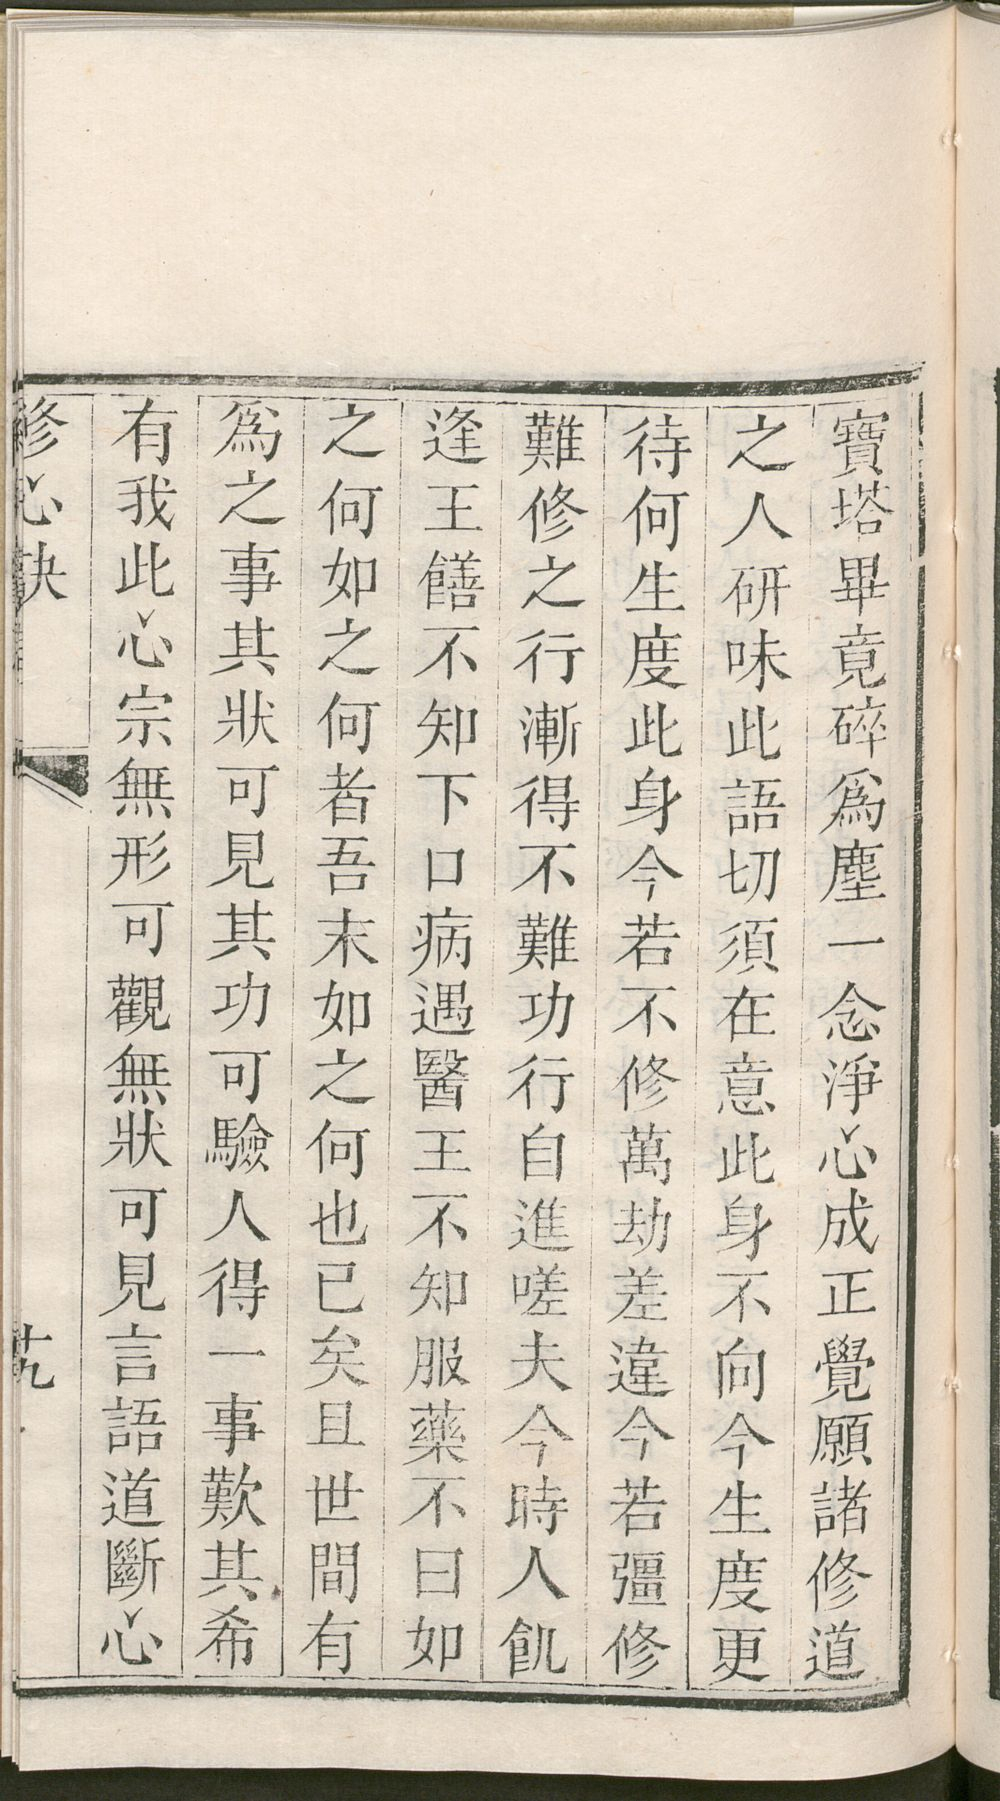 寶塔畢竟碎爲塵一念淨心成正覺願諸修道
之人研味此語切須在意此身不向今生度更
待何生度此身今若不修萬劫差違今若彊修
難修之行漸得不難功行自進嗟夫今時人飢
逢王饍不知下口病遇醫王不知服藥不曰如
之何如之何者吾末如之何也已矣且世間有
爲之事其狀可見其功可驗人得一事歎其希
有我此心宗無形可觀無狀可見言語道斷心
修心訣
十九